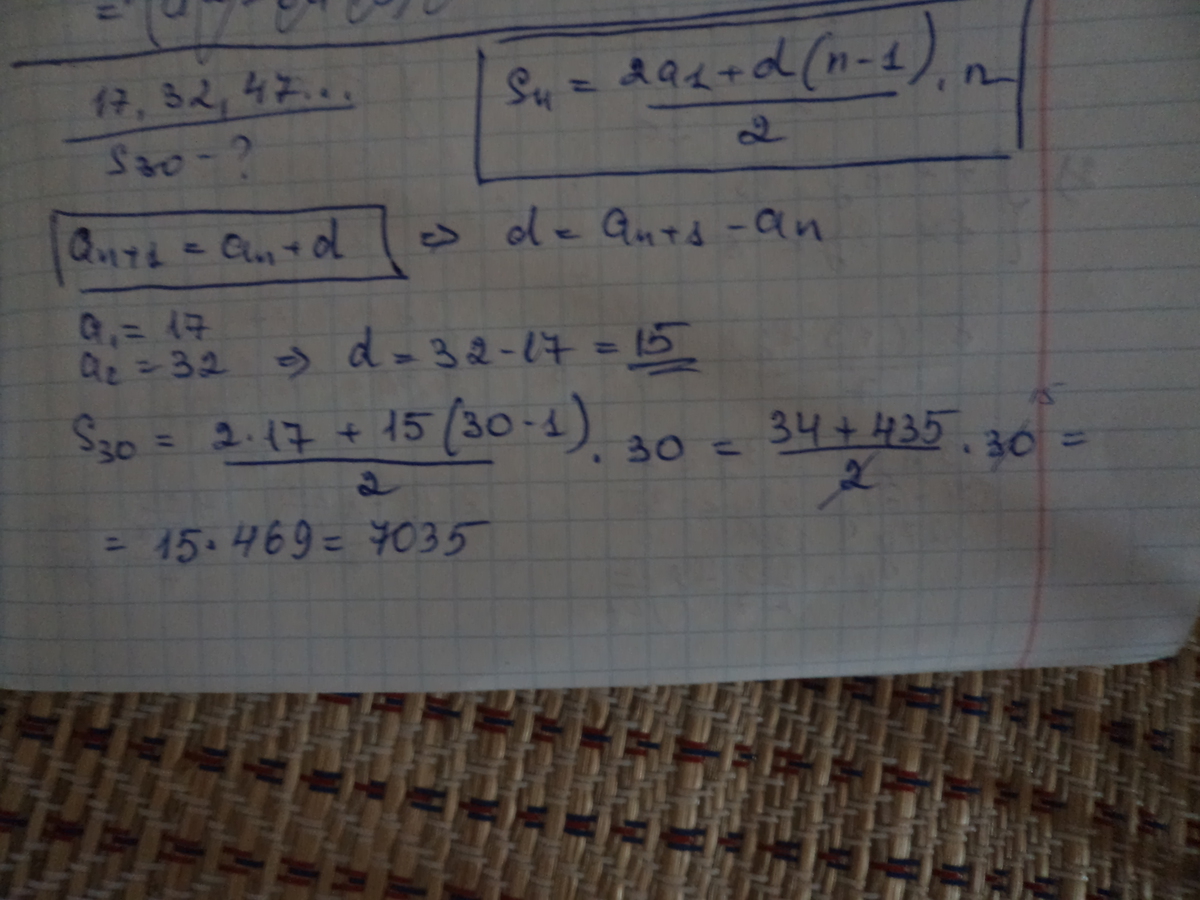 17, 32, 47...
S30 - ?
Sn = (2a1 + d(n-1))/2 · n
an+1 = an + d ⇒ d = an+1 - an
a1 = 17
a2 = 32 ⇒ d = 32 - 17 = 15
S30 = (2·17 + 15(30-1))/2 · 30 = (34 + 435)/2 · 30 15 =
= 15 · 469 = 7035